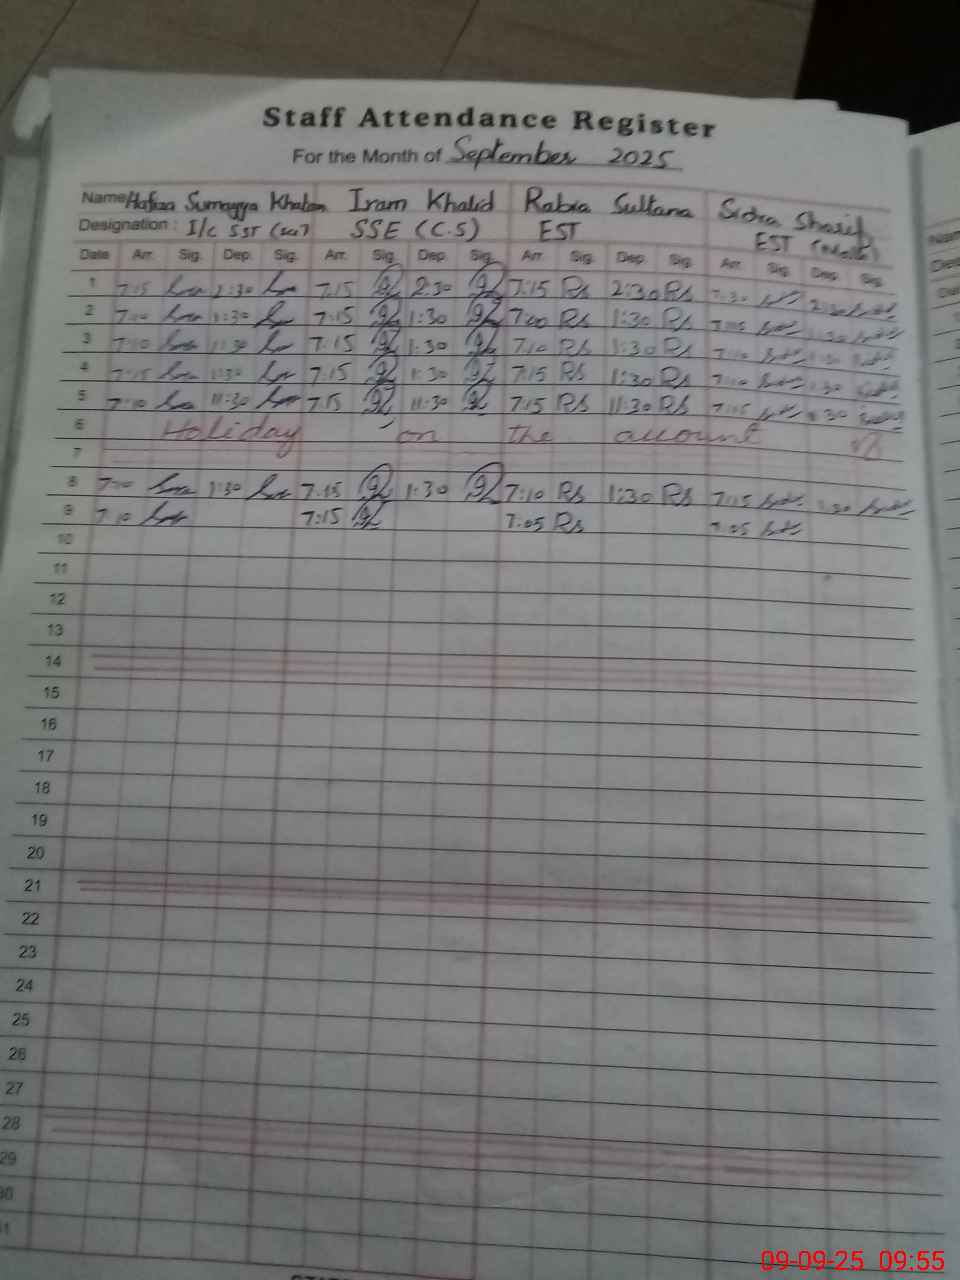 Staff Attendance Register
For the Month of September 2025
Name Hafiza Sumayya Khalan Iram Khalid Rabia Sultana Sidra Sharif
Designation : I/c SST (sci) SSE (C.S) EST EST (Math)
Date Arr. Sig. Dep. Sig. Arr. Sig. Dep. Sig. Arr. Sig. Dep. Sig. Arr. Sig. Dep. Sig.
1 7:15 2:30 7.15 2:30 7:15 Rs 2:30 Rs 7:30 2:30
2 7:10 1:30 7:15 1:30 7:00 Rs 1:30 Rs 7:15 1:30
3 7:10 1:30 7.15 1:30 7:10 Rs 1:30 Rs 7:10 1:30
4 7:15 1:30 7.15 1:30 7:15 Rs 1:30 Rs 7:10 1:30
5 7:10 11:30 7.15 11:30 7:15 Rs 11:30 Rs 7:15
6 Holiday on the account
7
8 7:10 1:30 7.15 1:30 7:10 Rs 1:30 Rs 7:15 1:30
9 7:10 7:15 7.05 Rs 7:05
10
11
12
13
14
15
16
17
18
19
20
21
22
23
24
25
26
27
28
29
30
31
09-09-25 09:55